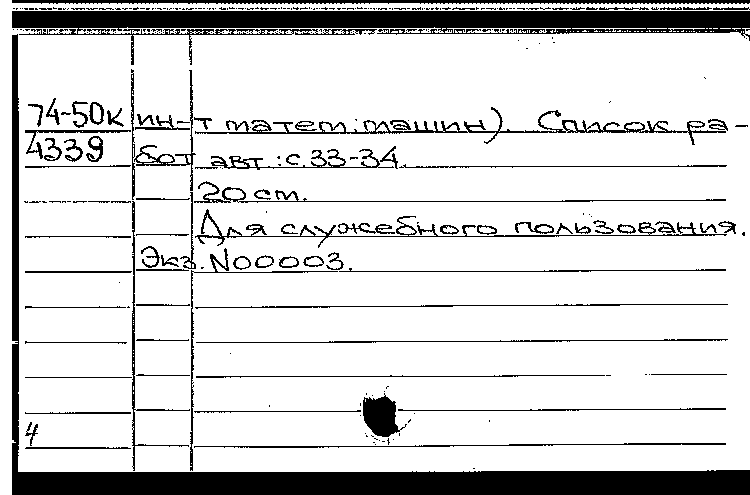 74-50к ин-т матем. машин). Список ра-
4339 бот авт.: с.33-34.
20 см.
Для служебного пользования.
Экз. N00003.
4